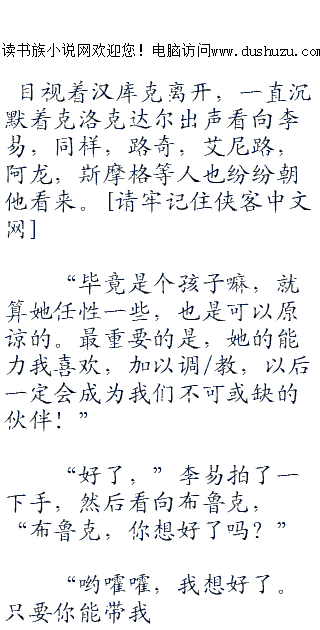 读书族小说网欢迎您！电脑访问www.dushuzu.com
目视着汉库克离开，一直沉
默着克洛克达尔出声看向李
易，同样，路奇，艾尼路，
阿龙，斯摩格等人也纷纷朝
他看来。[请牢记住侠客中文
网]
“毕竟是个孩子嘛，就
算她任性一些，也是可以原
谅的。最重要的是，她的能
力我喜欢，加以调/教，以后
一定会成为我们不可或缺的
伙伴！”
“好了，”李易拍了一
下手，然后看向布鲁克，
“布鲁克，你想好了吗？”
“哟嚯嚯，我想好了。
只要你能带我